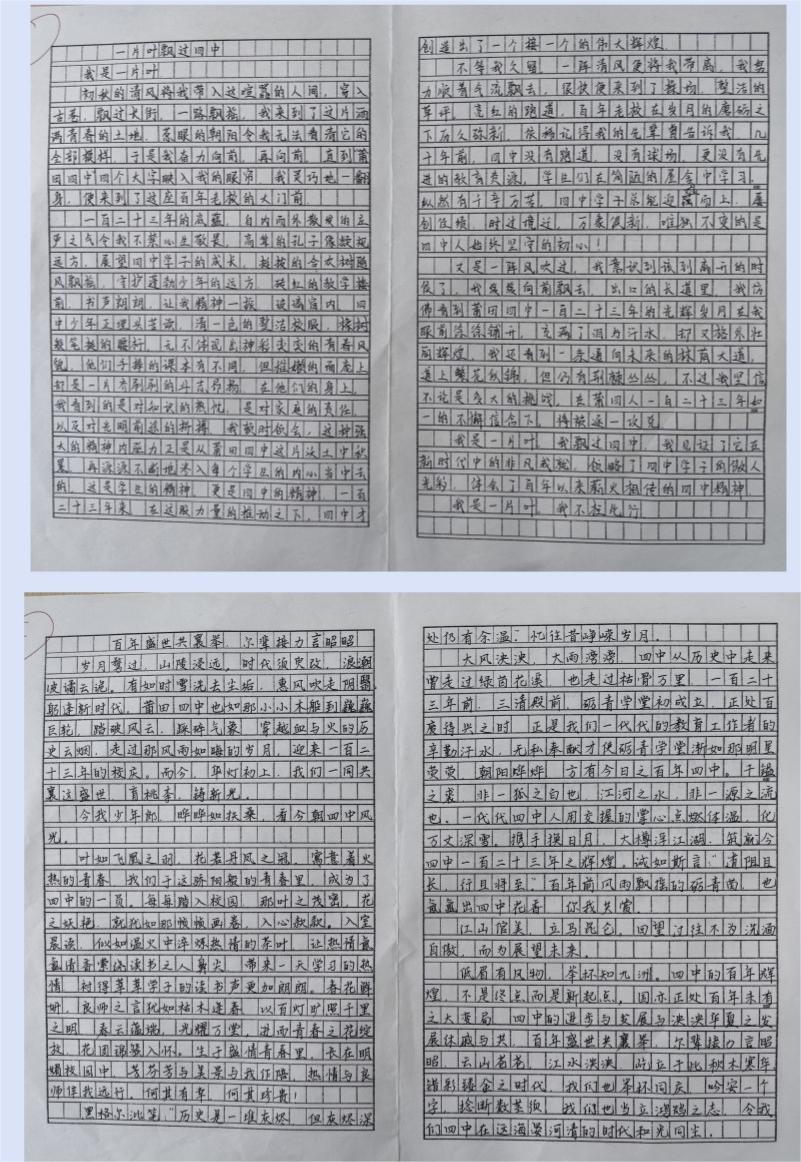 一片叶飘过四中
我是一片叶。
初秋的清风将我带入这喧嚣的人间，穿入
古巷，飘过长街，一路飘摇，我来到了这片涵
满青春的土地，惹眼的朝阳令我无法看清它的
全部模样，于是我奋力向前，再向前，直到莆
田四中四个大字映入我的眼帘，我灵巧地一翻
身，便来到了这座百年老校的大门前。
一百二十三年的底蕴，自内而外散发的庄
严之气令我不禁心生敬畏，高耸的孔子像兢视
远方，展望四中学子的成长，挺拔的合欢树随
风飘摇，守护莲勃少年的远方，砖红的教学楼
前，书声朗朗，让我精神一振，谈谈窗内，四
中少年正埋头苦读，清一色的整洁校服，像树
般笔挺的腰杆，无不体现出神彩奕奕的青春风
貌，他们手捧的课本有不同，但稚嫩的面庞上
却是一片齐刷刷的斗志昂扬，在他们的身上，
我看到的是对知识的热忱，是对家庭的责任，
以及对光明前途的拼搏，我顿时领会，这种强
大的精神内驱力正是从莆田四中这片沃土中积
累，再源源不断地术入每个学生的内心当中去
的，这是学生的精神，更是四中的精神，一百
二十三年来，在这股力量的推动之下，四中才
创造出了一个接一个的伟大辉煌。
不等我久留，一阵清风便将我带离，我努
力顺着气流飘去，很快便来到了操场，整洁的
草坪，亮红的跑道，百年老校在岁月的磨砺之
下历久弥新，依稀记得我的先辈曾告诉我，几
十年前，四中没有跑道，没有球场，更没有先
进的教育资源，学生们在简陋的屋舍中学习，
纵然有千辛万苦，四中学子总能迎难而上，屡
创佳绩，时过境迁，万象俱新，唯独不变的是
四中人始终坚守的初心！
又是一阵风吹过，我意识到该到离开的时
候了，我缓缓向前飘去，出口的长道里，我仿
佛看到莆田四中一百二十三年的光辉岁月在我
眼前徐徐铺开，充满了泪与汗水，却又格外壮
丽辉煌，我还看到一条通向未来的林荫大道，
道上繁花似锦，但仍有荆棘丛丛，不过我坚信
不论是多大的挑战，在莆四人一百二十三年如
一的不懈信念下，将被逐一攻克。
我是一片叶，我飘过四中，我见证了它在
新时代中的非凡成就，领略了四中学子的敏人
光彩，体会了百年以来薪火相传的四中精神。
我是一片叶，我不枉此行。
百年盛世共襄举，尔辈接力言昭昭
岁月骛过，山陵浸远。时代须臾改，浪潮
波谲云诡。有如时雪洗去尘垢，惠风吹走阴翳，
躬逢新时代。莆田四中也如那小小木船到巍巍
巨轮，踏破风云，睬眸气象，穿越血与火的历
史云烟，走过那风雨如晦的岁月，迎来一百二
十三年的校庆。而今，华灯初上，我们一同共
襄这盛世，育桃李，铸新光。
今我少年郎，晔晔如扶桑，看今朝四中风
光。
叶如飞凰之羽，花若丹凤之冠，寓靠着火
热的青春，我们于这骄阳般的青春里，成为了
四中的一员。每每踏入校园，那叶之茂密，花
之妖艳，就犹如那帧帧画卷，入心款款。入室
晨读，似如温火中淬炼热情的茶叶，让热情氤
氲清香萦绕读书之人鼻尖，带来一天学习的热
情，衬得莘莘学子的读书声更加朗朗。春花骈
妍，良师之言犹如枯木逢春，以百灯旷照千里
之明，春云蔼燃，光耀万堂，进而青春之花绽
放，花团锦簇入怀。生于盛情青春里，长在明
媚校园中，芳芬芳与美景与我作陪，热情与良
师伴我远行，何其有幸，何其珍贵！
黑格尔沉笔“历史是一堆灰烬，但灰烬深
处仍有余温”忆往昔峥嵘岁月。
大风泱泱，大雨滂滂，四中从历史中走来
曾走过绿茵花溪，也走过枯骨万里，一百二十
三年前，三清殿前，砺青学堂初成立，正处百
废待兴之时，正是我们一代代的教育工作者的
辛勤汗水，无私奉献才使砺青学堂渐如那明星
荧荧，朝阳烨烨，方有今日之百年四中。千镒
之裘，非一狐之白也，江河之水，非一源之流
也。一代代四中人用交握的掌心点燃体温，化
万丈深雪。携手摸日月，大樽浮江湖，筑就今
四中一百二十三年之辉煌。诚如斯言“道阻且
长，行且将至”百年前风雨飘摇的砺青曲，也
氤氲出四中花香，你我共赏。
江山信美，立马昆仑。回望过往不为沉湎
自傲，而为展望未来。
低眉有风物，举杯知九洲。四中的百年辉
煌，不是终点而是新起点。国亦正处百年未有
之大变局，四中的进步与发展与泱泱华夏之发
展休戚与共，百年盛世共襄举，尔辈接力言昭
昭，云山苍苍，江水泱泱，屹立于此秋木寒华，
错彩镂金之时代，我们也举杯同庆，吟安一个
字，捻断数茎须，我们也当立鸿鹄之志，令我
们四中在这海晏河清的时代和光同生。